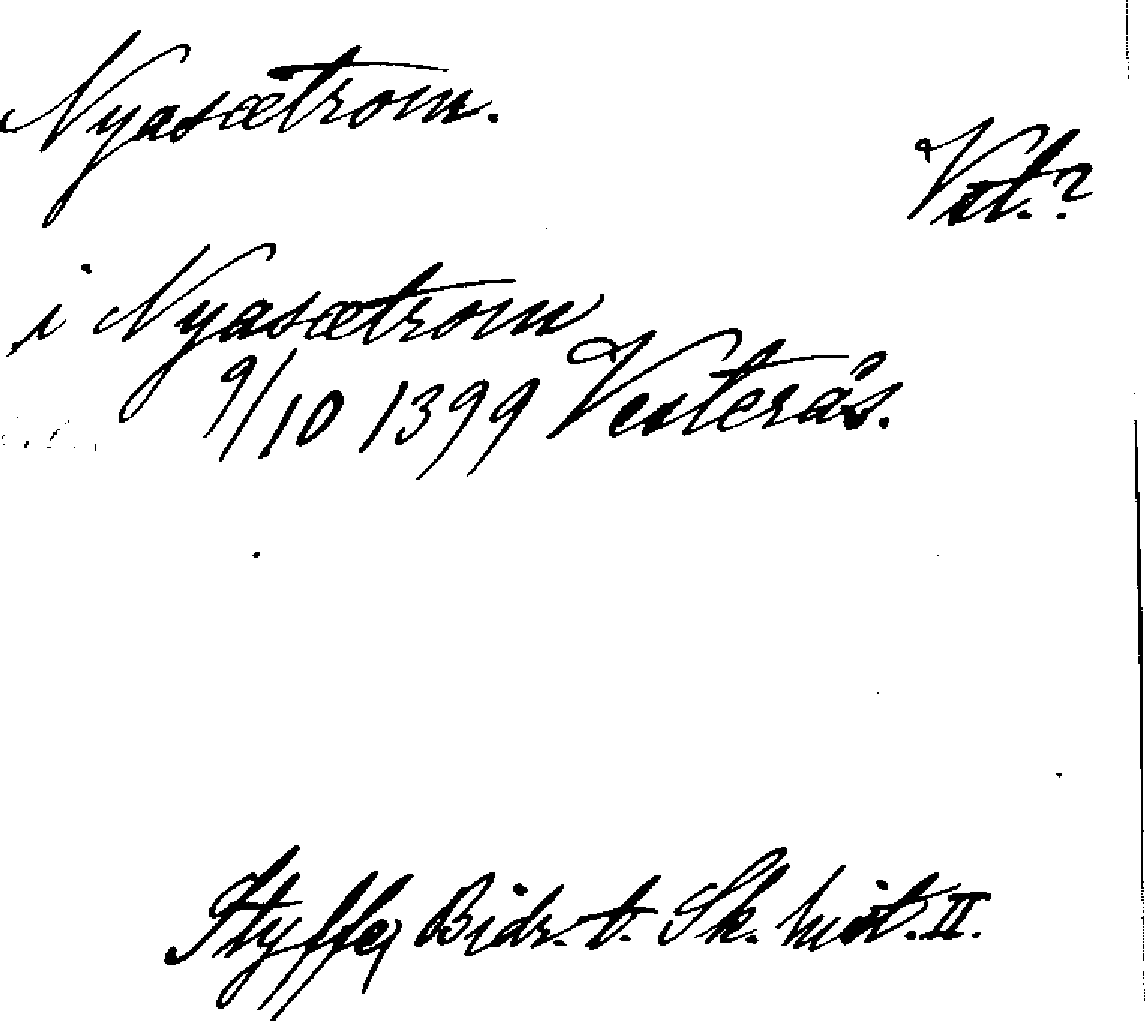 Nyasætrom.
Vst.?
i Nyasætrom
9/10 1399 Vesterås.
Styffe, Bidr. t. Sk. hist. II.